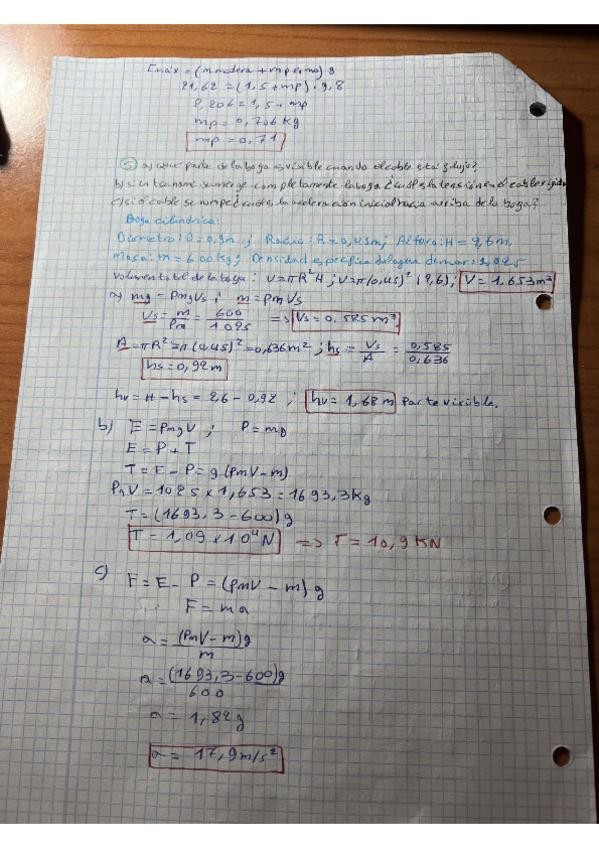 Emáx = (mmadera + mplomo) g
21,62 = (1,5 + mp) · 9,8
2,206 = 1,5 + mp
mp = 0,706 kg
mp = 0,71
5 a) ¿Qué parte de la boga es visible cuando el cable está flujo?
b) si un tsunami sumerge completamente la boga ¿cuál es la tensión en el cable rígido
c) si el cable se rompe ¿cuál es la aceleración inicial hacia arriba de la boga?
Boga cilíndrica:
Diámetro: D = 0,9m ; Radio: R = 0,45m; Altura: H = 2,6 m.
Masa: m = 600 kg; Densidad específica del agua de mar: 1,025
Volumen total de la boga : V = πR²H ; V = π(0,45)² (2,6); V = 1,653 m³
a) mg = ρmgVs ; m = ρm Vs
Vs = m/ρm = 600/1025 => Vs = 0,585 m³
A = πR² = π(0,45)² = 0,636 m² ; hs = Vs/A = 0,585/0,636
hs = 0,92 m
hv = H - hs = 2,6 - 0,92 ; hv = 1,68 m Parte visible.
b) E = ρmgV ; P = mg
E = P + T
T = E - P = g (ρmV - m)
ρmV = 1025 x 1,653 = 1693,3 kg
T = (1693,3 - 600) g
T = 1,09 x 10⁴ N => T = 10,9 KN
c) F = E - P = (ρmV - m) g
F = ma
a = (ρmV - m)g / m
a = (1693,3 - 600)g / 600
a = 1,82 g
a = 17,9 m/s²